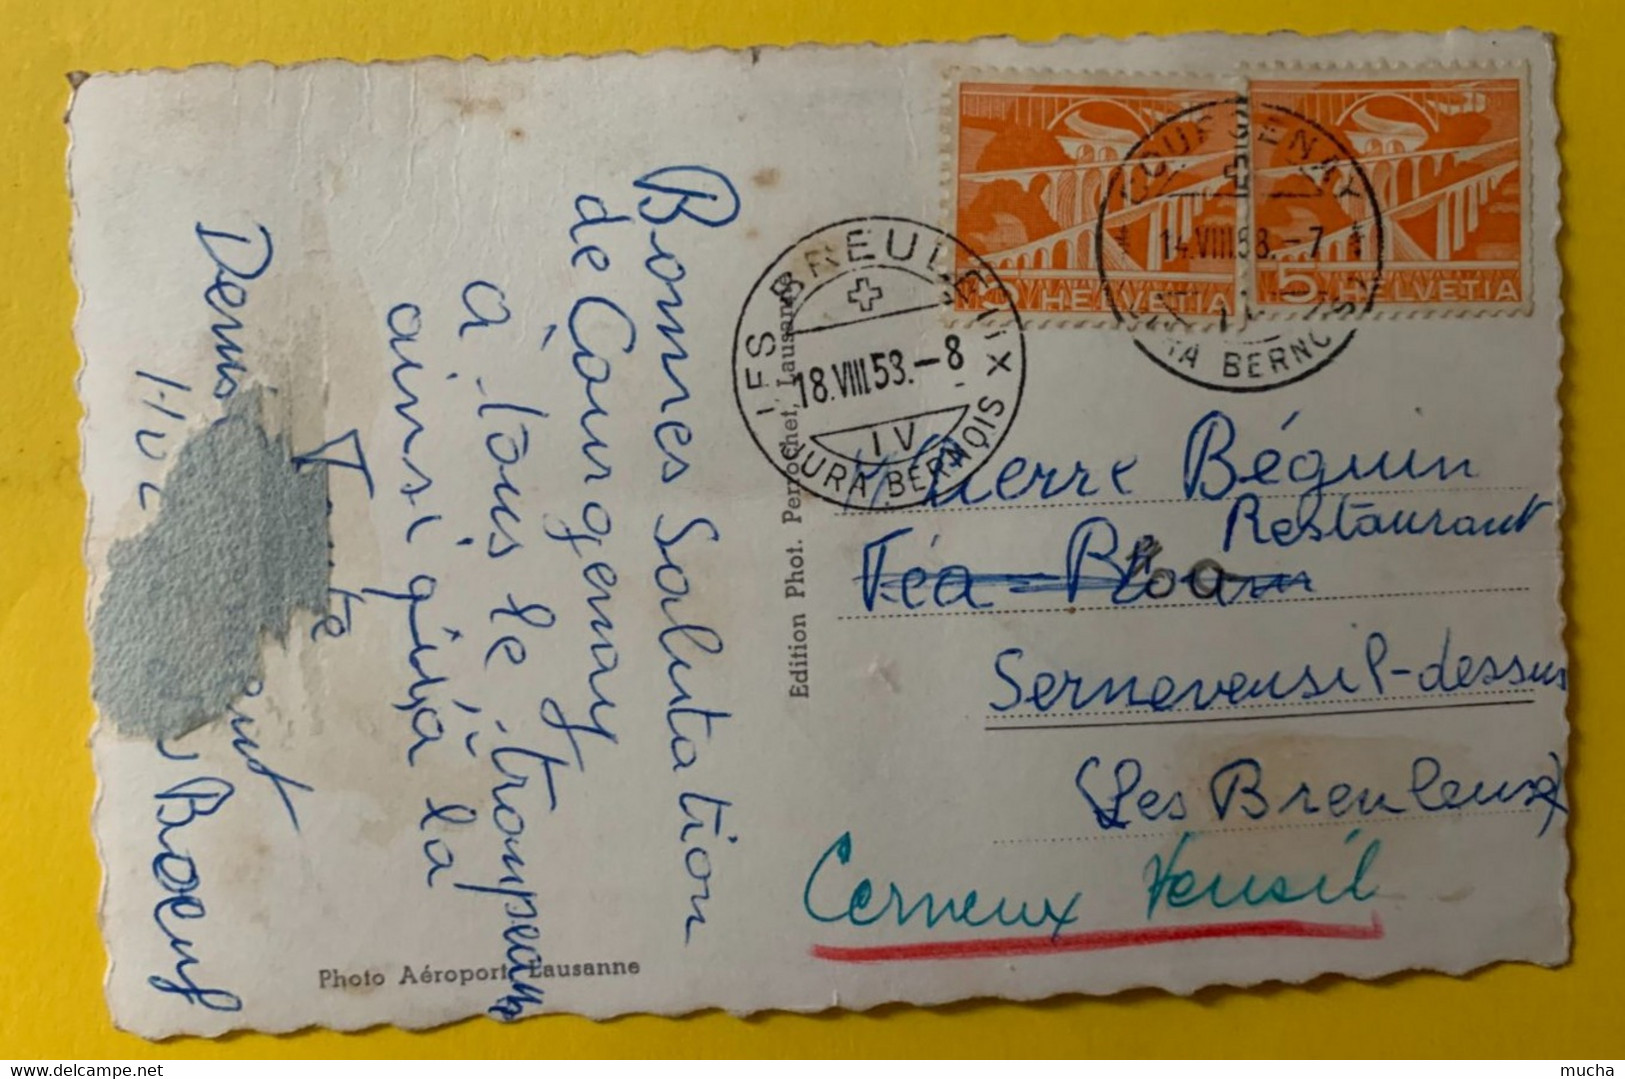 Bonnes Salutation
de Courgenay
à tous le troupeau
ainsi qu'à la
Denis
Boeuf
Edition Phot. Perrochet, Lausanne
Photo Aéroport Lausanne
HELVETIA
5 HELVETIA
COURGENAY
14.VIII.53.-7
JURA BERNOIS
LES BREULEUX
18.VIII.53.-8
IV
JURA BERNOIS
Pierre Béguin
Restaurant
Serneveusil-dessus
(Les Breuleux)
Cerneux Veusil
mucha